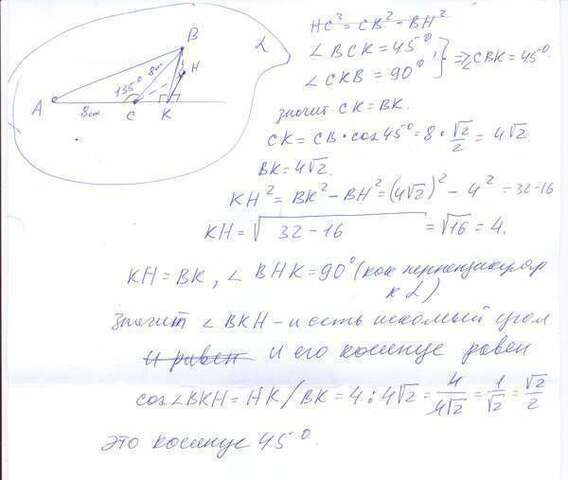 B
H
A
C
K
8см
8см
135°
α
HC² = CB² - BH²
∠BCK = 45°
∠CKB = 90° } ⇒ ∠CBK = 45°
значит CK = BK.
CK = CB · cos 45° = 8 · √2/2 = 4√2
BK = 4√2.
KH² = BK² - BH² = (4√2)² - 4² = 32-16
KH = √32 - 16 = √16 = 4.
KH = BK, ∠BHK = 90° (как перпендикуляр
к α)
Значит ∠BKH - и есть искомый угол
и равен и его косинус равен
cos∠BKH = HK/BK = 4 : 4√2 = 4/4√2 = 1/√2 = √2/2
это косинус 45°.